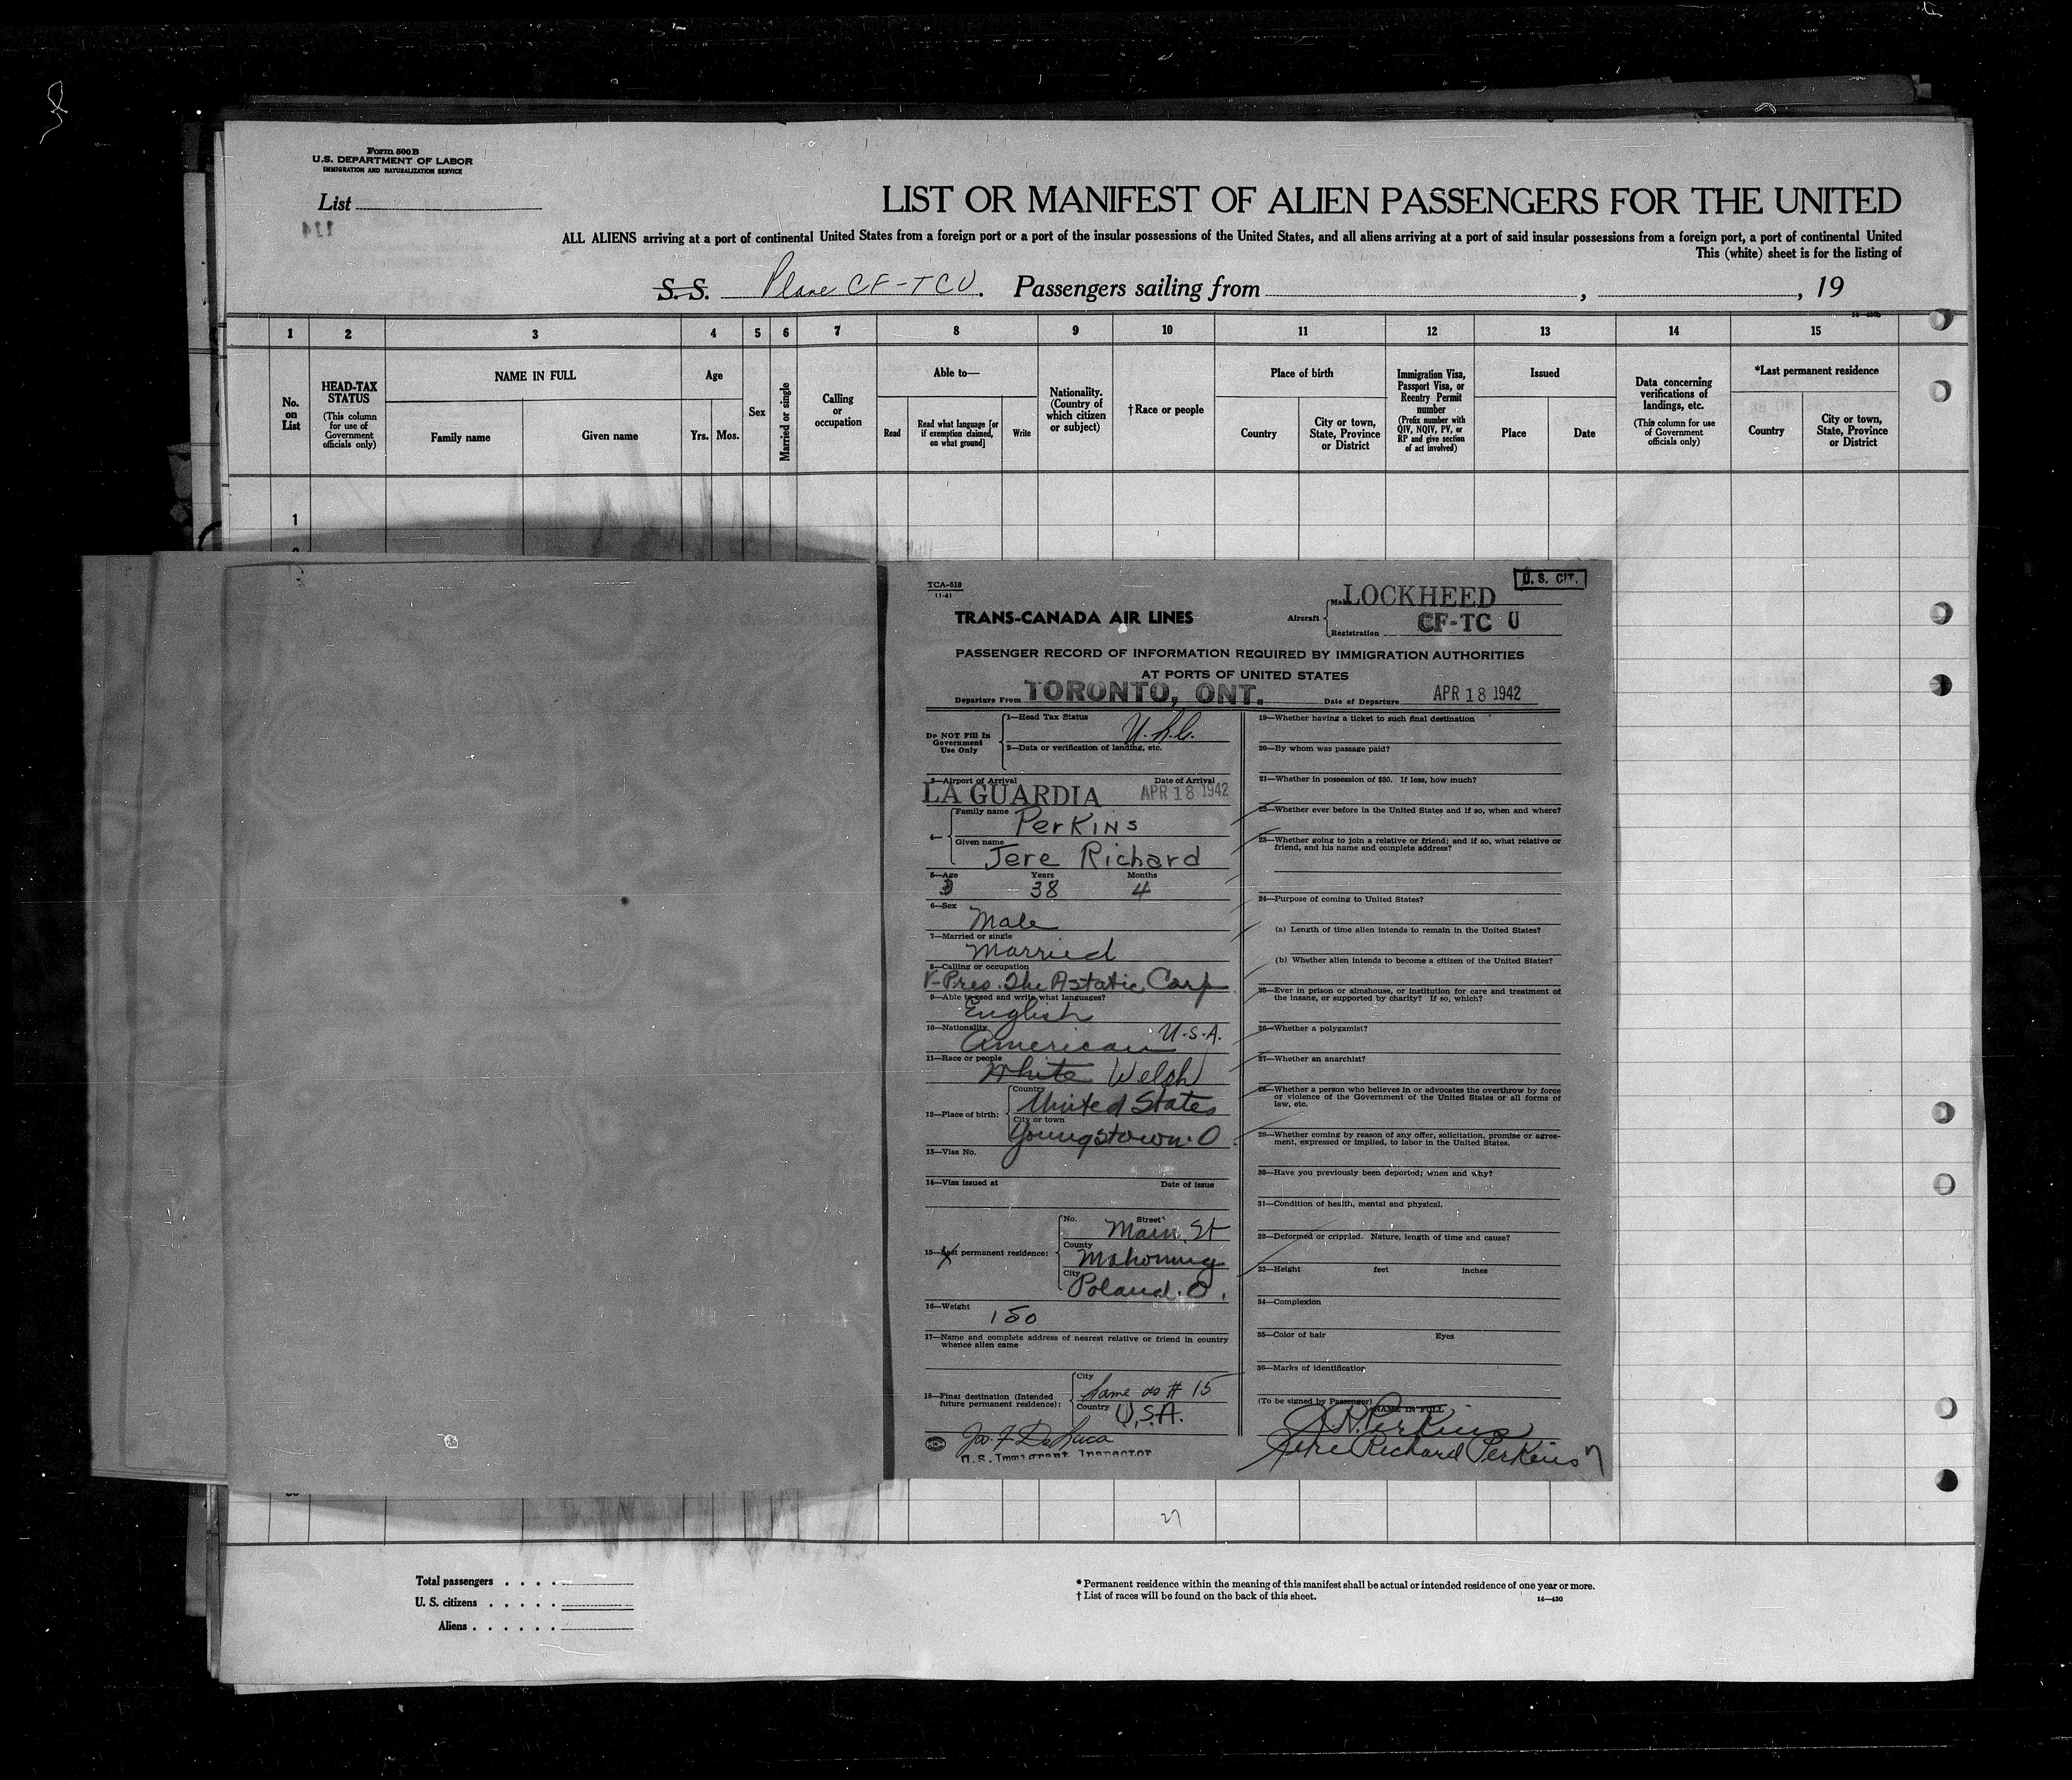 Form 500 B
U.S. DEPARTMENT OF LABOR
IMMIGRATION AND NATURALIZATION SERVICE
List
114
LIST OR MANIFEST OF ALIEN PASSENGERS FOR THE UNITED
ALL ALIENS arriving at a port of continental United States from a foreign port or a port of the insular possessions of the United States, and all aliens arriving at a port of said insular possessions from a foreign port, a port of continental United
This (white) sheet is for the listing of
S.S. Plane CF-TCU. Passengers sailing from , , 19
1 2 3 4 5 6 7 8 9 10 11 12 13 14 15
No. on List
HEAD-TAX STATUS
(This column for use of Government officials only)
NAME IN FULL
Family name Given name
Age
Yrs. Mos.
Sex
Married or single
Calling or occupation
Able to—
Read
Read what language [or if exemption claimed, on what ground]
Write
Nationality. (Country of which citizen or subject)
†Race or people
Place of birth
Country
City or town, State, Province or District
Immigration Visa, Passport Visa, or Reentry Permit number
(Prefix number with QIV, NQIV, PV, or RP and give section of act involved)
Issued
Place Date
Data concerning verifications of landings, etc.
(This column for use of Government officials only)
*Last permanent residence
Country
City or town, State, Province or District
1
TCA-518
11-41
U. S. CIT.
TRANS-CANADA AIR LINES
Aircraft
Make LOCKHEED
Registration CF-TC U
PASSENGER RECORD OF INFORMATION REQUIRED BY IMMIGRATION AUTHORITIES
AT PORTS OF UNITED STATES
Departure From TORONTO, ONT. Date of Departure APR 18 1942
Do NOT Fill In Government Use Only
1—Head Tax Status
2—Data or verification of landing, etc.
3—Airport of Arrival Date of Arrival
LA GUARDIA APR 18 1942
4— Family name Perkins
Given name Jere Richard
5—Age Years 38 Months 4
6—Sex
Male
7—Married or single
Married
8—Calling or occupation
V-Pres. The Astatic Corp
9—Able to read and write what languages?
English
10—Nationality
American U.S.A.
11—Race or people
White Welsh
12—Place of birth:
Country United States
City or town Youngstown. O
13—Visa No.
14—Visa issued at Date of issue
15—Last permanent residence:
No. Street Main. St
County Mahoning
City Poland. O.
16—Weight 150
17—Name and complete address of nearest relative or friend in country whence alien came
18—Final destination (Intended future permanent residence):
City Same as # 15
Country U.S.A.
U.S. Immigrant Inspector
19—Whether having a ticket to such final destination
20—By whom was passage paid?
21—Whether in possession of $50. If less, how much?
22—Whether ever before in the United States and if so, when and where?
23—Whether going to join a relative or friend; and if so, what relative or friend, and his name and complete address?
24—Purpose of coming to United States?
(a) Length of time alien intends to remain in the United States?
(b) Whether alien intends to become a citizen of the United States?
25—Ever in prison or almshouse, or institution for care and treatment of the insane, or supported by charity? If so, which?
26—Whether a polygamist?
27—Whether an anarchist?
28—Whether a person who believes in or advocates the overthrow by force or violence of the Government of the United States or all forms of law, etc.
29—Whether coming by reason of any offer, solicitation, promise or agreement, expressed or implied, to labor in the United States.
30—Have you previously been deported; when and why?
31—Condition of health, mental and physical.
32—Deformed or crippled. Nature, length of time and cause?
33—Height feet inches
34—Complexion
35—Color of hair Eyes
36—Marks of identification
(To be signed by Passenger) NAME IN FULL
J. R. Perkins
Jere Richard Perkins
27
Total passengers . . . .
U. S. citizens . . . . .
Aliens . . . . . .
* Permanent residence within the meaning of this manifest shall be actual or intended residence of one year or more.
† List of races will be found on the back of this sheet.
14—430